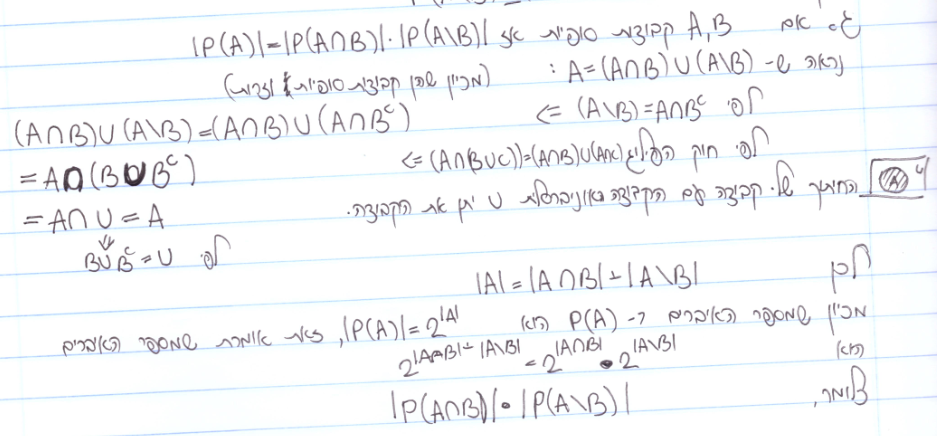 ג. אם A,B קבוצות סופיות אז |P(A)|=|P(A∩B)|·|P(A\B)|
נראה ש- A=(A∩B)∪(A\B) : (מכיוון שהן קבוצות סופיות וזרות)
לפי (A\B)=A∩Bᶜ <=
(A∩B)∪(A\B)=(A∩B)∪(A∩Bᶜ)
לפי חוק הפילוג (A∩(B∪C))=(A∩B)∪(A∩C) <=
=A∩(B∪Bᶜ)
החיתוך של קבוצה עם הקבוצה האוניברסלית U יתן את הקבוצה.
=A∩U=A
לפי B∪Bᶜ=U
לכן |A|=|A∩B|+|A\B|
מכיוון שמספר האיברים ב- P(A) הוא |P(A)|=2^|A|, זאת אומרת שמספר האיברים
הוא 2^|A∩B|+|A\B| =2^|A∩B| • 2^|A\B|
כלומר, |P(A∩B)|•|P(A\B)|